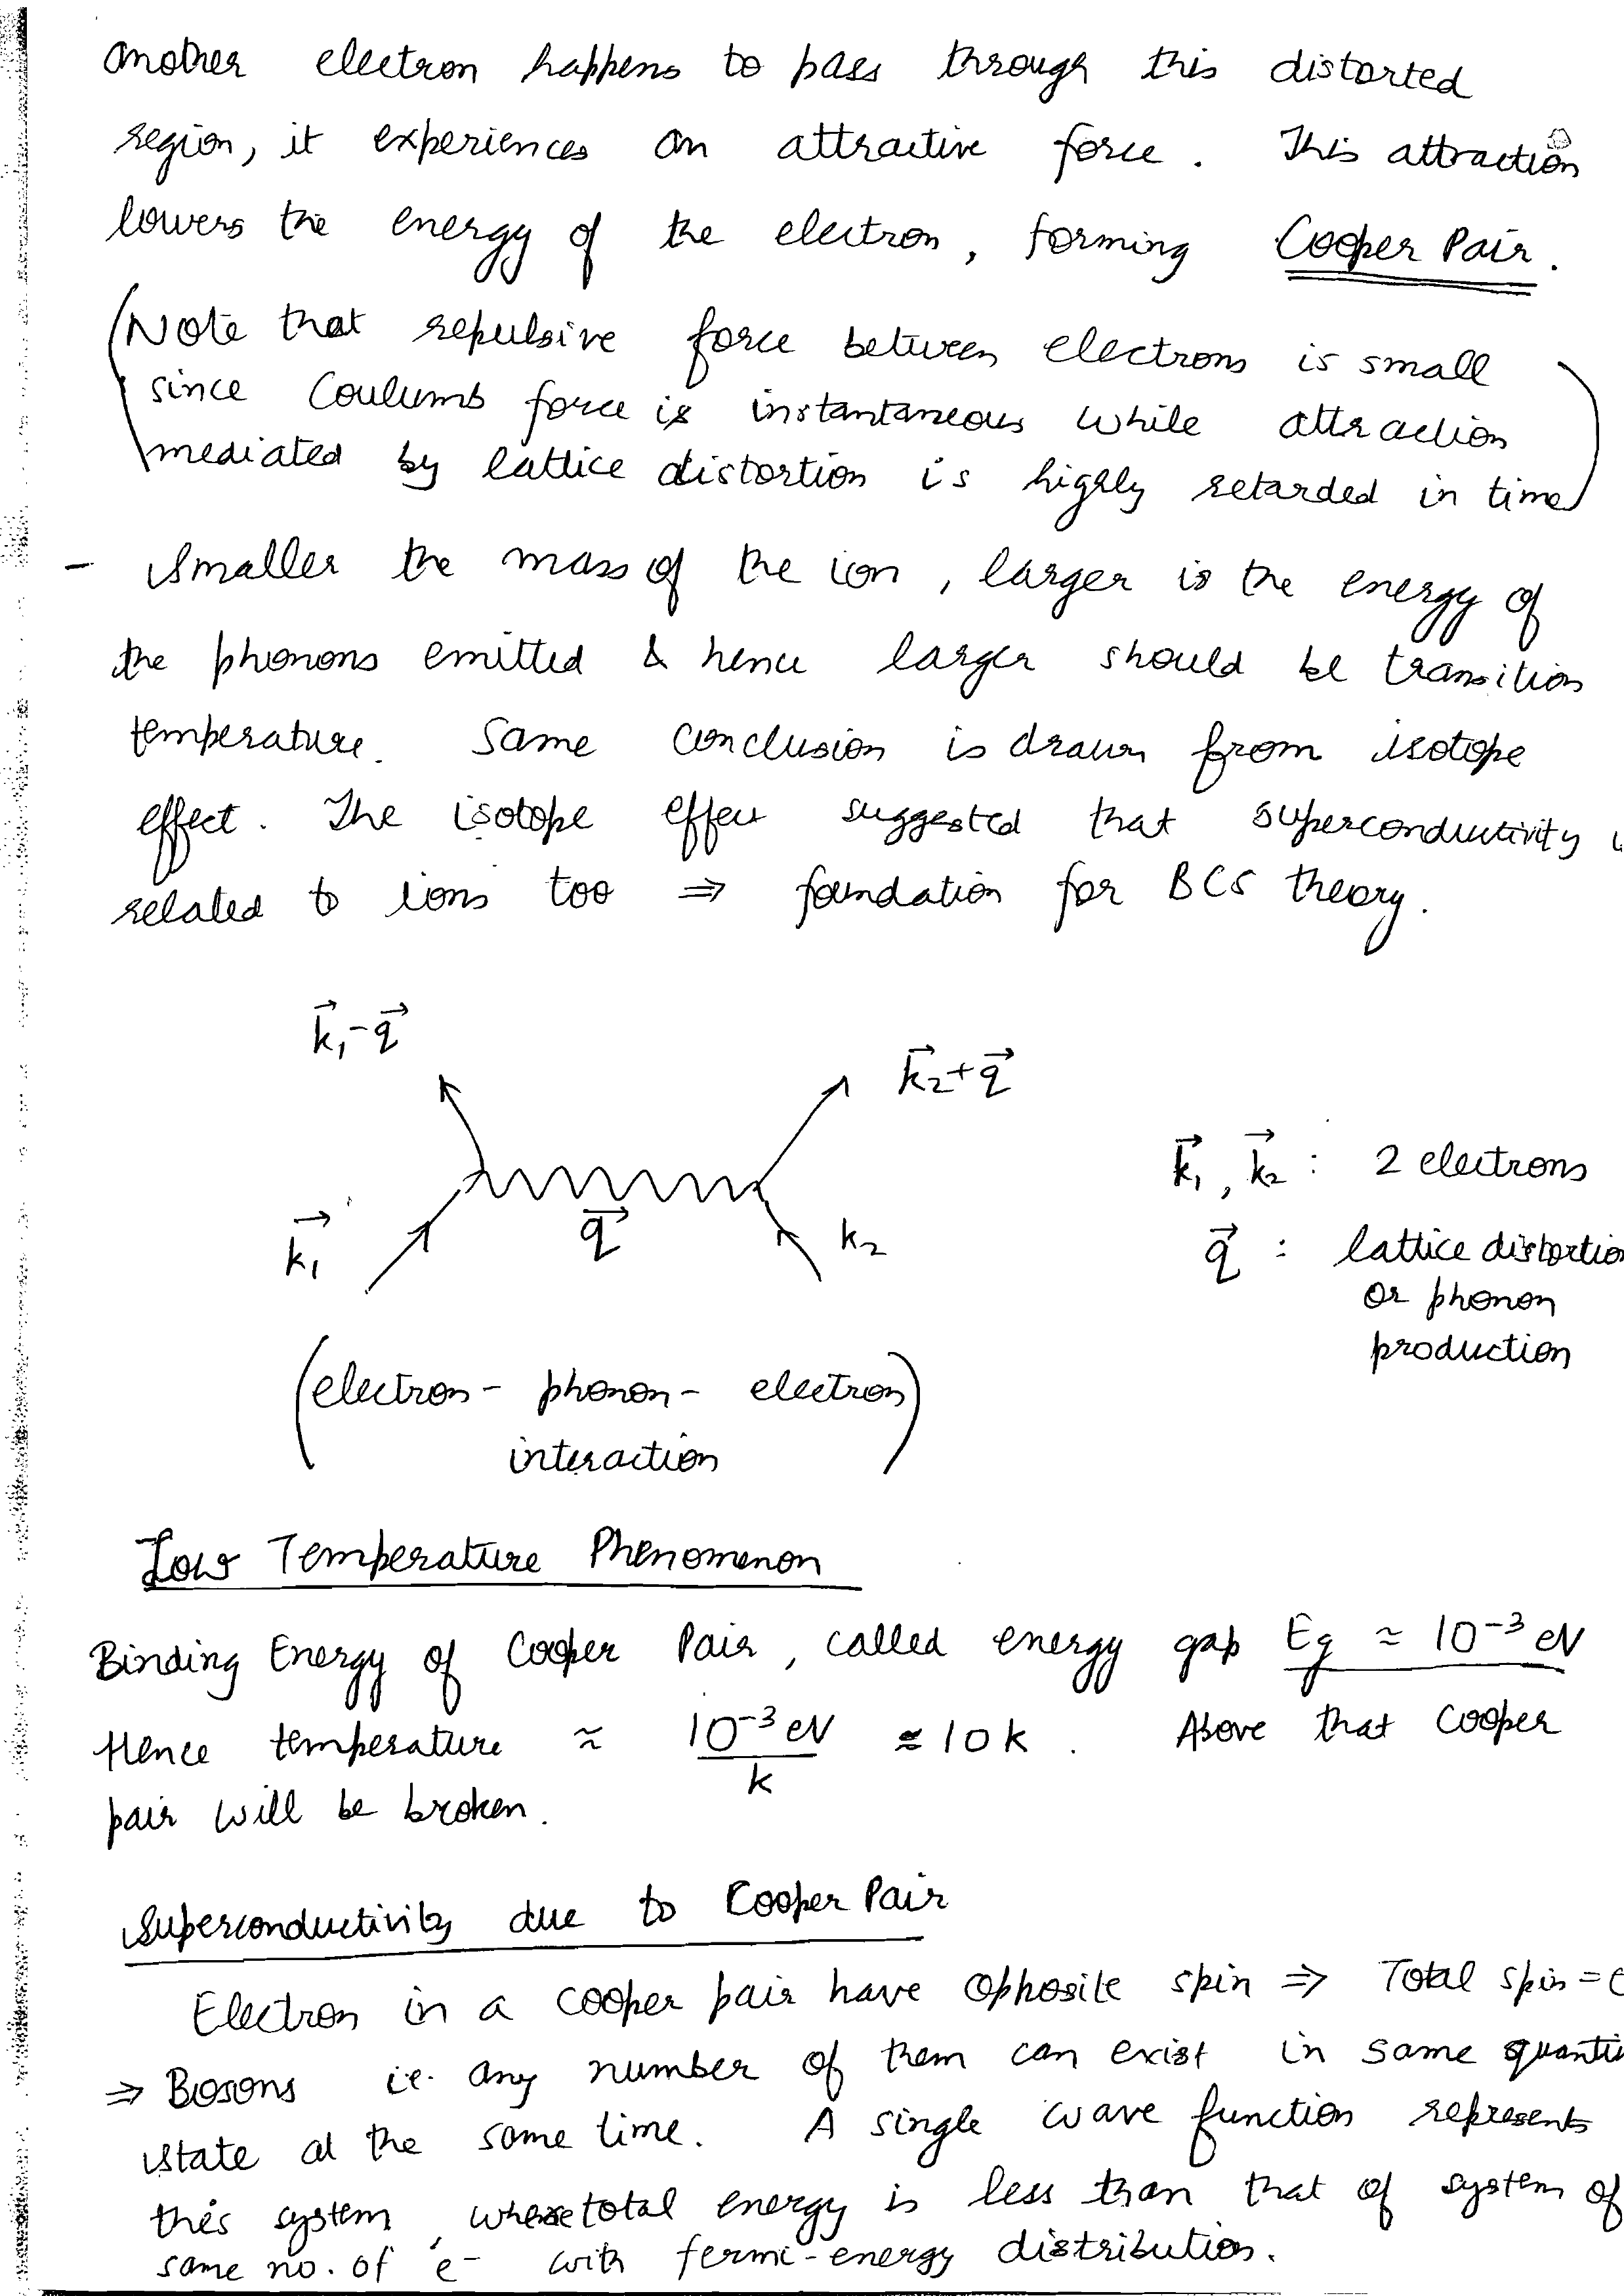 another electron happens to pass through this distorted
region, it experiences an attractive force. This attraction
lowers the energy of the electron, forming Cooper Pair.
(Note that repulsive force between electrons is small
since Coulumb force is instantaneous while attraction
mediated by lattice distortion is highly retarded in time)
- Smaller the mass of the ion, larger is the energy of
the phonons emitted & hence larger should be transition
temperature. Same conclusion is drawn from isotope
effect. The isotope effect suggested that superconductivity
related to ions too ⇒ foundation for BCS theory.
k⃗₁-q⃗
k⃗₂+q⃗
k⃗₁, k⃗₂ : 2 electrons
k⃗₁ q⃗ k₂
q⃗ : lattice distortio
or phonon
production
(electron - phonon - electron
interaction)
Low Temperature Phenomenon
Binding Energy of Cooper Pair, called energy gap Eg ≈ 10⁻³ eV
Hence temperature ≈ 10⁻³ eV / k ≈ 10 K. Above that cooper
pair will be broken.
Superconductivity due to Cooper Pair
Electron in a cooper pair have opposite spin ⇒ Total spin =
⇒ Bosons i.e. any number of them can exist in same quanti
state at the same time. A single wave function represents
this system, where total energy is less than that of system of
same no. of e⁻ with fermi-energy distribution.